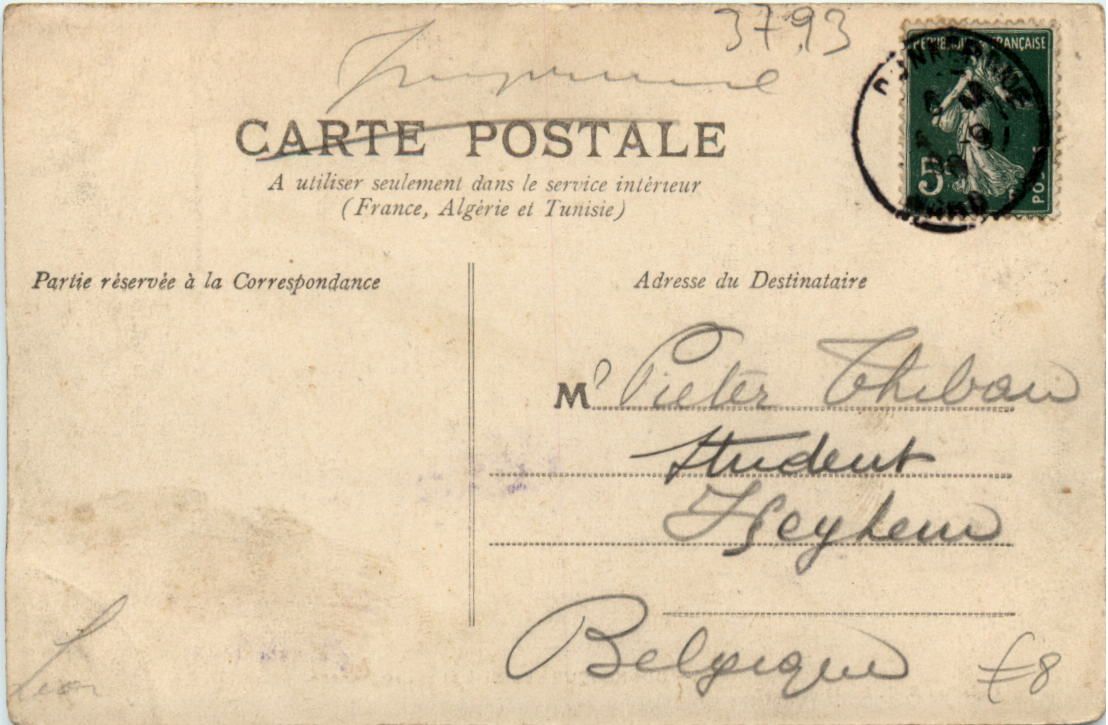 3793
CARTE POSTALE
A utiliser seulement dans le service intérieur
(France, Algérie et Tunisie)
REPUBLIQUE FRANÇAISE
5
POSTES
DUNKERQUE
NORD
Partie réservée à la Correspondance
Adresse du Destinataire
Mr Pieter Thibau
Student
Iseghem
Belgique
Leon
£8